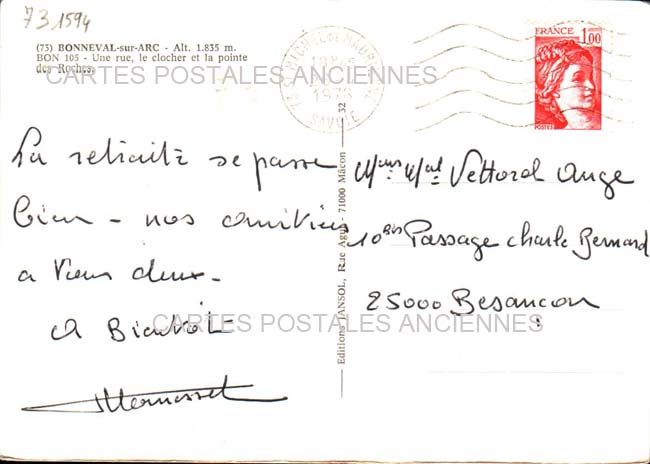 73 1594
(73) BONNEVAL-sur-ARC - Alt. 1.835 m.
BON 105 - Une rue, le clocher et la pointe
des Roches.
CARTES POSTALES ANCIENNES
SAVOIE
FRANCE
1,00
POSTES
La retraite se passe
bien - nos amitiés
a vous deux.
A Bientôt
Mr et Mme Vettorel Ange
10 bis Passage Charle Bernard
25000 Besancon
Editions JANSOL, Rue Agut - 71000 Mâcon 32
CARTES POSTALES ANCIENNES